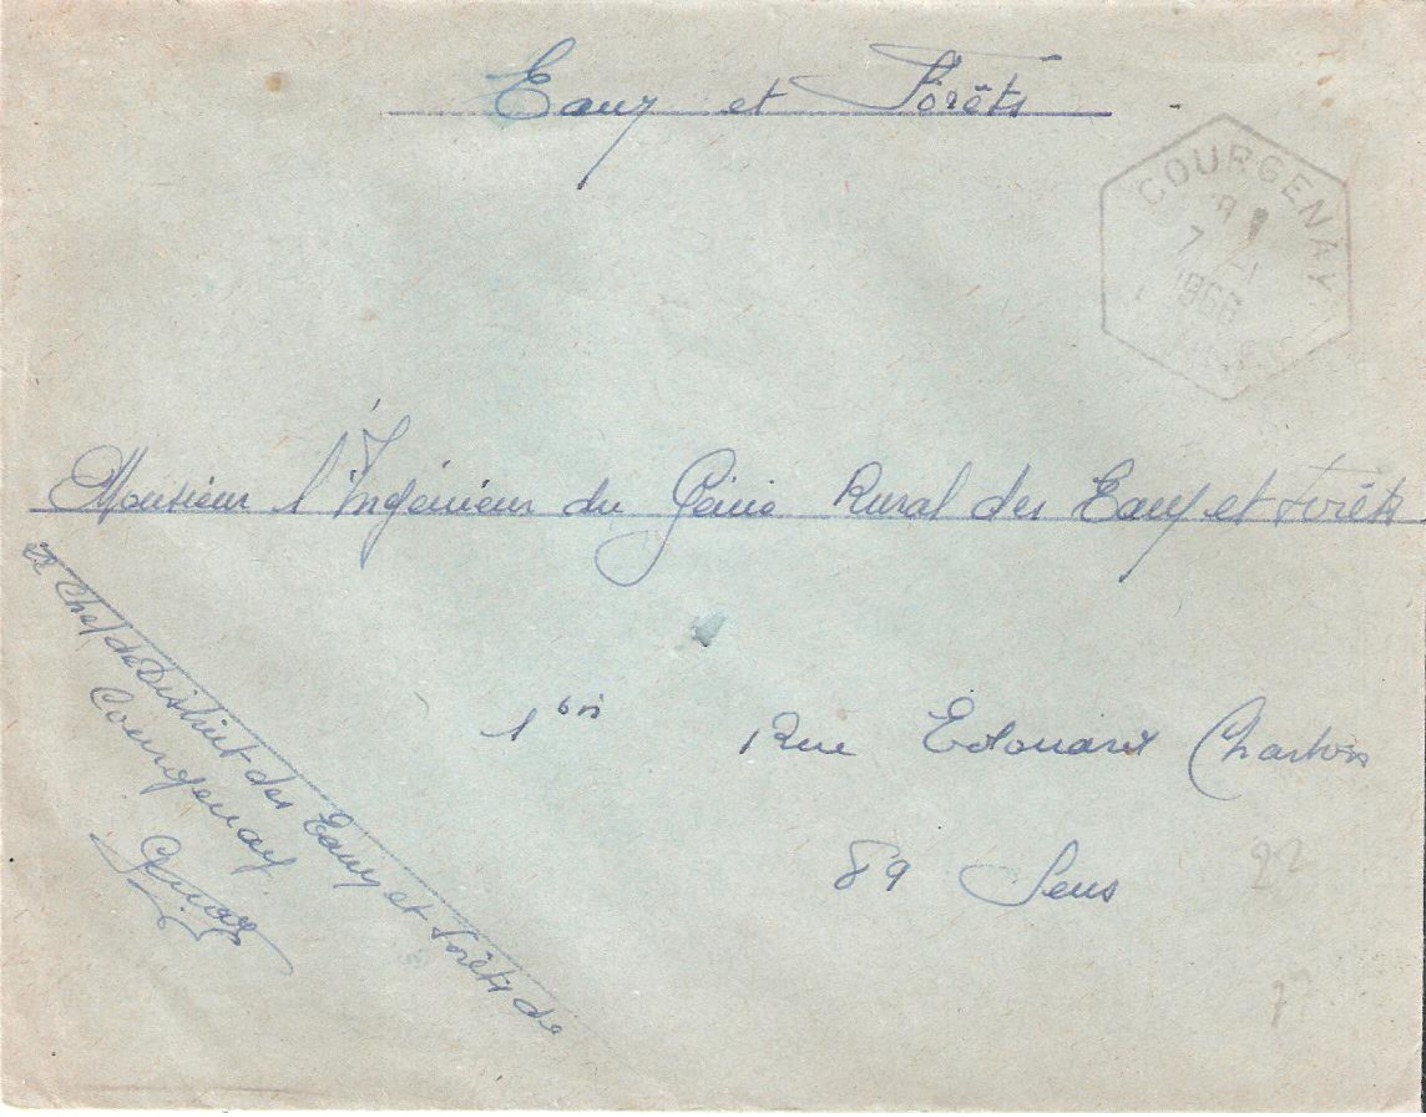 Eaux et Forêts
COURGENAY
7 -1
1966
Monsieur l'Ingénieur du Génie Rural des Eaux et Forêts
1 bis Rue Edouard Charton
89 Sens
Le Chef de District des Eaux et Forêts de
Courgenay
22